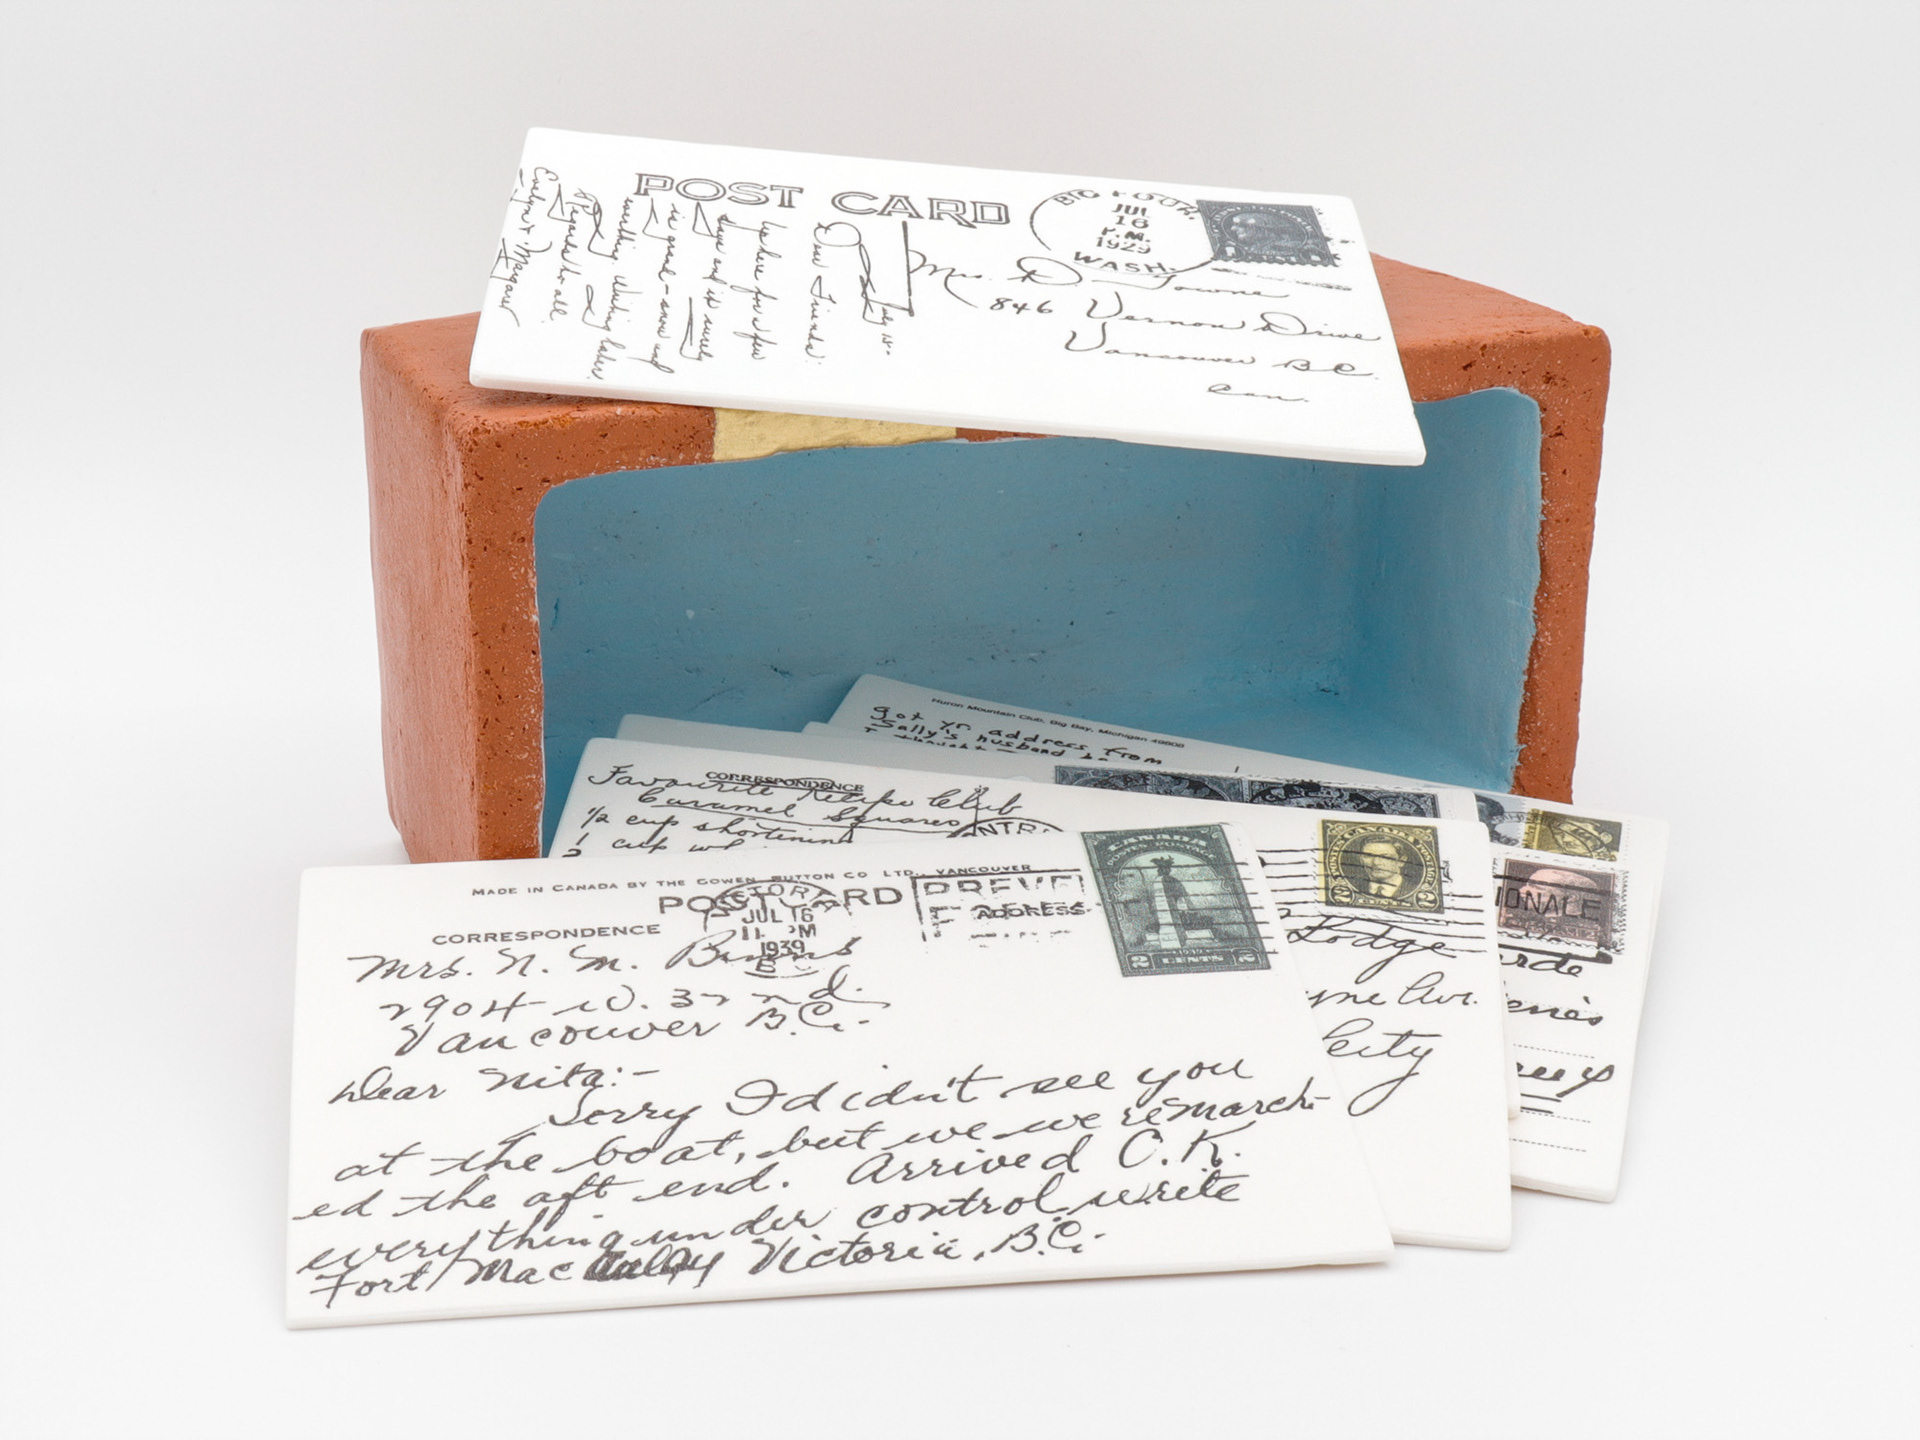 POST CARD
BIG FOUR.
JUL
16
P.M.
1929
WASH.
Mrs. D. Towne
846 Vernon Drive
Vancouver B.C.
Can.
July 15.
Dear Friends:
Up here for a few
days and it surely
is grand - snow and
everything. Writing later.
Regards to all.
Evelyn & Margaret
Huron Mountain Club, Big Bay, Michigan 49808
got yr. address from
Sally's husband
+ thought
CORRESPONDENCE
Favourite Recipe Club
Caramel Squares
1/2 cup shortening
1 cup
2
NTR
CANADA
POSTES POSTAGE
2 2
Lodge
yne Ave.
City
IONALE
erde
enès
MADE IN CANADA BY THE GOWEN SUTTON CO LTD., VANCOUVER
POST CARD
CORRESPONDENCE
TOR
JUL 16
11 PM
1939
B
PREVE
ADDRESS
CANADA
POSTES POSTAGE
2 CENTS 2
Mrs. N. M. Burns
2904 - W. 32nd.
Vancouver B.C.
Dear Nita:-
Sorry I didn't see you
at the boat, but we were march-
ed the aft end. Arrived O.K.
everything under control write
Fort Mac Victoria, B.C.